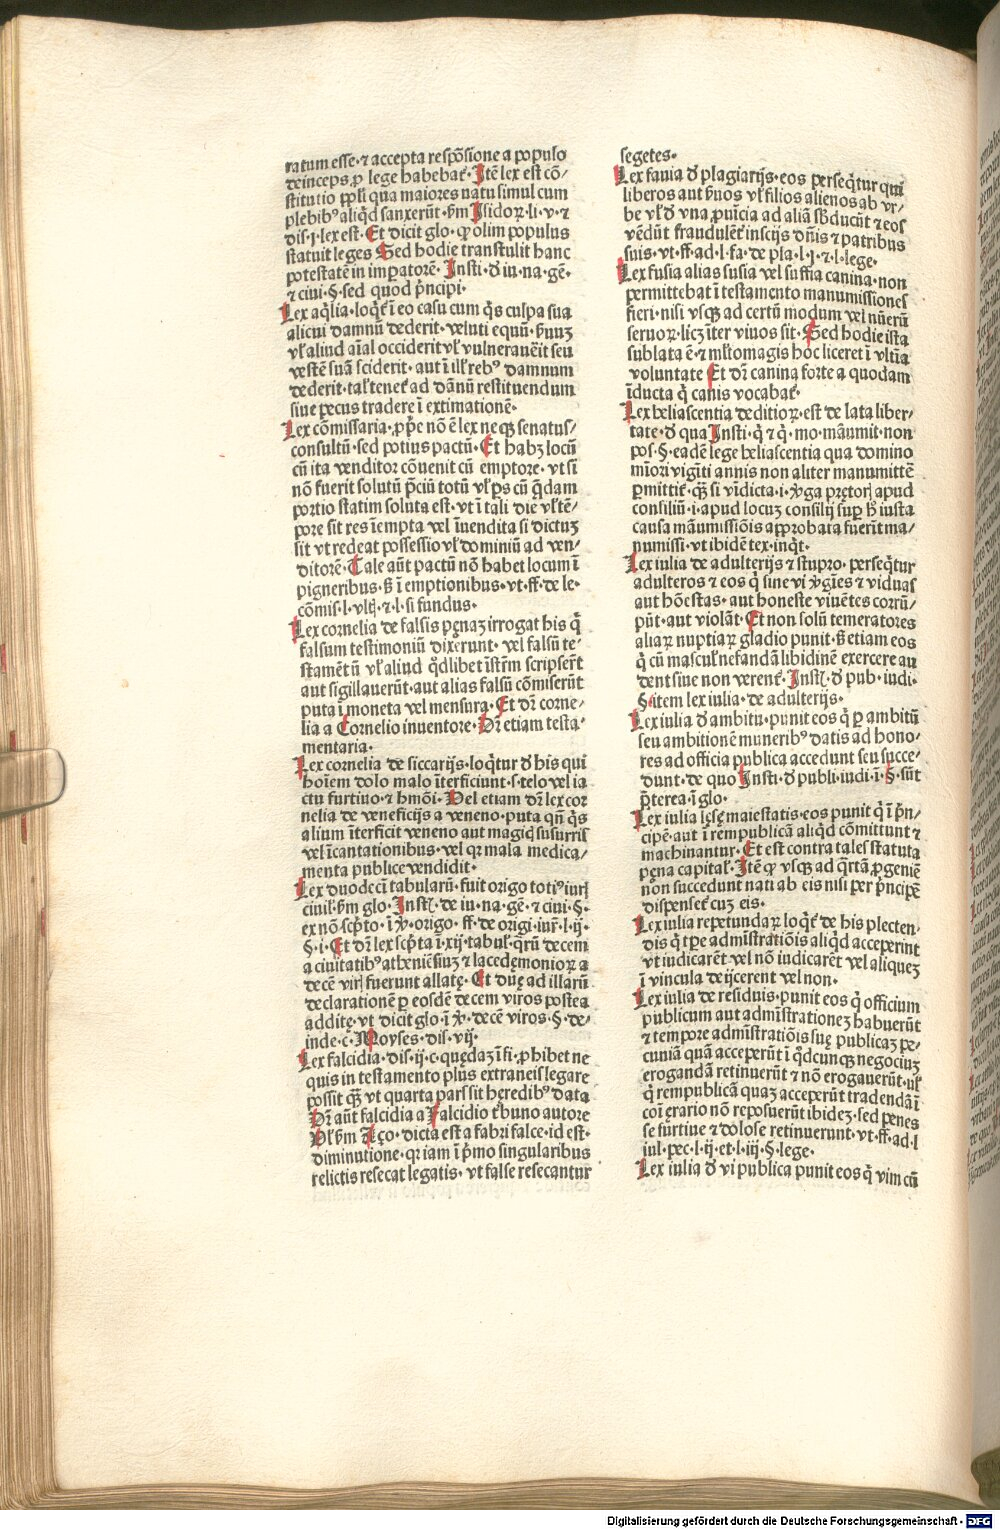 ratum esse· ⁊ accepta respõsione a populo
deinceps ꝓ lege habebat̃· Itẽ lex est cõ/
stitutio ppl̃i qua maiores natu simul cum
plebibꝰ aliq̃d sanxerũt· s̃m Isidoꝝ· li· v· ⁊
dis· j· lex est· Et dicit glo· ꝙ olim populus
statuit leges Sed hodie transtulit hanc
potestatẽ in imꝑatorẽ· Insti· ð iu· na· gẽ·
⁊ ciui· §· sed quod p̃ncipi·
Lex aq̃lia· loq̃t̃ ĩ eo casu cum q̃s culpa sua
alicui damnũ dederit· veluti equũ· s̃uuꝫ
vl̃ aliud aĩal occiderit vl̃ vulnerauẽit seu
vestẽ suã sciderit· aut ĩ ill̃ rebꝰ damnum
dederit· tal̃ tenet̃ ad dãnũ restituendum
siue pecus tradere ĩ extimationẽ·
Lex cõmissaria· ꝓp̃e nõ ẽ lex neqꝫ senatus/
consultũ· sed potius pactũ· Et habꝫ locũ
cũ ita venditor cõuenit cũ emptore· vt si
nõ fuerit solutũ p̃ciũ totũ vl̃ ꝑs cũ q̃dam
portio statim soluta est· vt ĩ tali die vl̃ tẽ/
pore sit res ĩempta vel ĩuendita si dictuꝫ
sit vt redeat possessio vl̃ dominiũ ad ven/
ditorẽ· Tale aũt pactũ nõ habet locum ĩ
pigneribus· s̃ ĩ emptionibus· vt· ff· de le·
cõmis· l· vltĩ· ⁊ l· si fundus·
Lex cornelia de falsis pęnaꝫ irrogat his q̃
falsum testimoniũ dixerunt· vel falsũ te/
stamẽtũ vl̃ aliud q̃dlibet ĩstr̃m scripser̃t
aut sigillauerũt· aut alias falsũ cõmiserũt
puta ĩ moneta vel mensura· Et dr̃ corne/
lia a Cornelio inuentore· Dr̃ etiam testa/
mentaria·
Lex cornelia de siccarijs· loq̃tur ð his qui
hoĩem dolo malo ĩterficiunt· s· telo vel ia
ctu furtiuo· ⁊ hmõi· Vel etiam dr̃ lex cor
nelia de veneficijs a veneno· puta qñ q̃s
alium ĩterficit veneno aut magiq̃ susurris
vel ĩcantationibus· vel qꝛ mala medica/
menta publice vendidit·
Lex duodecĩ tabularũ· fuit origo totiꝰ iurꝭ
ciuil̃· s̃m glo· Instĩ· de iu· na· gẽ· ⁊ ciui· §·
ex nõ sc̃pto· ĩ ꝟ· origo· ff· de origi· iur̃· l· ij·
§· i· Et dr̃ lex sc̃pta ĩ· xij· tabul̃· q̃rũ decem
a ciuitatibꝰ atheniẽsiuꝫ ⁊ lacedęmonioꝝ a
decẽ virꝭ fuerunt allatę· Et duę ad illarũ
declarationẽ ꝑ eosdẽ decem viros postea
additę· vt dicit glo· ĩ ꝟ· decẽ viros· §· de/
inde· c· Moyses· dis· vij·
Lex falcidia· dis· ij· c· quędaꝫ ĩ fi· ꝓhibet ne
quis in testamento plus extraneis legare
possit qꝫ̃ vt quarta pars sit heredibꝰ data
Dr̃ aũt falcidia a Falcidio tr̃buno autore
Vl̃ s̃m Aço· dicta est a fabri falce· id est·
diminutione· qꝛ iam ĩ p̃mo singularibus
relictis resecat legatis· vt false resecantur
segetes·
Lex fauia ð plagiarijs· eos perseq̃tur qui
liberos aut s̃uos vl̃ filios alienos ab vr/
be vl̃ ð vna ꝓuĩcia ad aliã sbducũt ⁊ eos
vẽdũt fraudulẽt̃ inscijs dñis ⁊ patribus
suis· vt· ff· ad· l· fa· de pla· l· j· ⁊ l· lege·
Lex fusia alias susia vel suffia canina· non
permittebat ĩ testamento manumissiones
fieri· nisi vsqꝫ ad certũ modum vel nũerũ
seruoꝝ· licꝫ ĩter viuos sit· Sed hodie ista
sublata ẽ· ⁊ ml̃tomagis hoc liceret ĩ vltĩa
voluntate Et dr̃ canina forte a quodam
ĩducta q̃ canis vocabat̃·
Lex beliascentia deditioꝝ· est de lata liber/
tate· ð qua Insti· q̃ ⁊ q̃· mo· mãumit· non
pos· §· eadẽ lege beliascentia qua domino
mĩori vigĩti annis non aliter manumittẽ
ꝑmittit̃· qꝫ̃ si vĩdicta· i· ꝟga prętorꝭ apud
consiliũ· i· apud locuꝫ consilij suꝑ h̃ iusta
causa mãumissiõis approbata fuer̃t ma/
numissi· vt ibidẽ tex· inq̃t·
Lex iulia de adulterijs ⁊ stupro· perseq̃tur
adulteros ⁊ eos q̃ sine vi ꝟgĩes ⁊ viduas
aut hõestas· aut honeste viuẽtes corrũ/
pũt· aut violãt· Et non solũ temeratores
aliaꝝ nuptiaꝝ gladio punit· s̃ etiam eos
q̃ cũ mascul̃ nefandã libidinẽ exercere au
dent siue non verent̃· Instĩ· ð pub· iudi·
§· item lex iulia· de adulterijs·
Lex iulia ð ambitu· punit eos q̃ ꝑ ambitũ
seu ambitionẽ muneribꝰ datis ad hono/
res ad officia publica accedunt seu succe/
dunt· de quo Insti· ð publi· iudi· ĩ· §· sũt
p̃terea· ĩ glo·
Lex iulia lęsę maiestatis· eos punit q̃ ĩ p̃n/
cipẽ· aut ĩ rempublicã aliq̃d cõmittunt ⁊
machinantur· Et est contra tales statuta
pęna capital̃· Itẽ ꝙ vsqꝫ ad q̃rtã ꝓgeniẽ
nõn succedunt nati ab eis nisi per p̃ncipẽ
dispenset̃ cuꝫ eis·
Lex iulia repetundaꝝ loq̃t̃ de his plecten·
dis q̃ t̃pe admĩstratiõis aliq̃d acceperint
vt iudicarẽt vel nõ iudicarẽt vel aliqueꝫ
ĩ vincula deijcerent vel non·
Lex iulia de residuis· punit eos q̃ officium
publicum aut admĩstrationeꝫ habuerũt
⁊ tempore admĩstratiõis suę publicaꝫ pe/
cuniã quã acceperũt ĩ q̃dcunqꝫ negociuꝫ
erogandã retinuerũt ⁊ nõ erogauerũt· vl̃
q̃ rempublicã quaꝫ acceperũt tradendã ĩ
coĩ ęrario nõ reposuerũt ibideꝫ· sed penes
se furtiue ⁊ dolose retinuerunt· vt· ff· ad· l
iul· pec· l· ij· et· l· iij· §· lege·
Lex iulia ð vi publica punit eos q̃ vim cũ
Digitalisierung gefördert durch die Deutsche Forschungsgemeinschaft · DFG